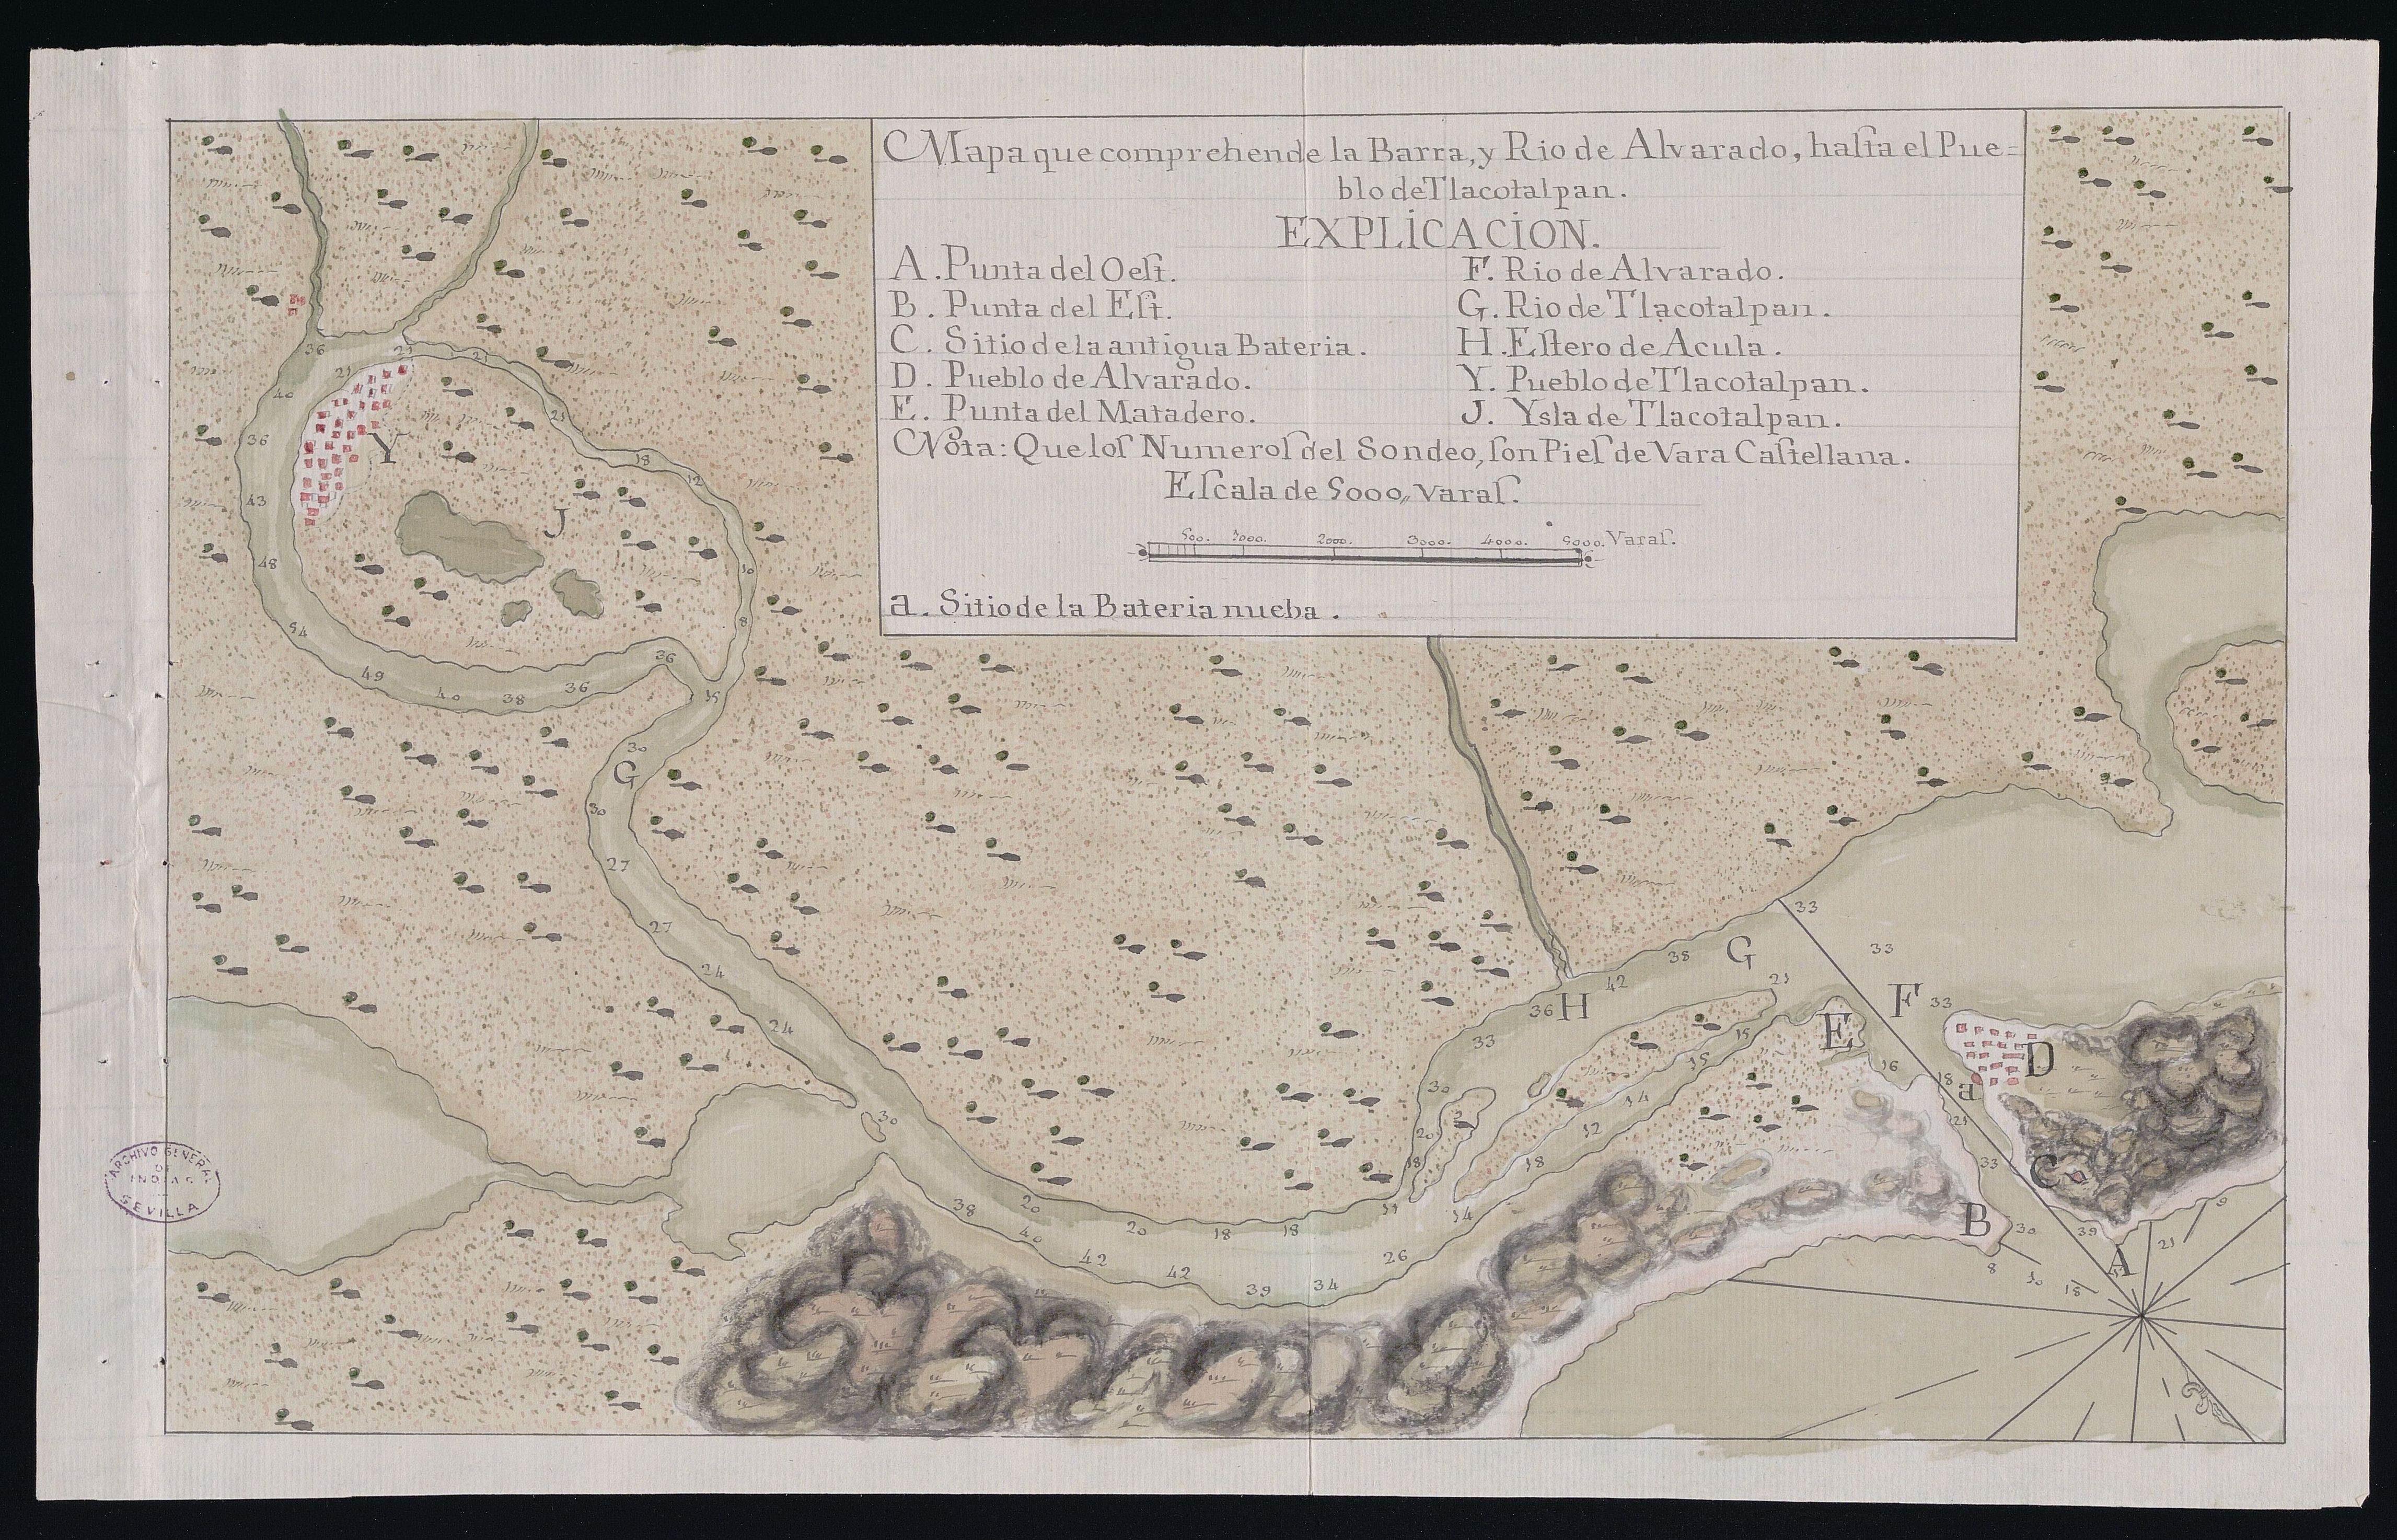 Mapa que comprehende la Barra, y Rio de Alvarado, hasta el Pue=
blo de Tlacotalpan.
EXPLICACION.
A. Punta del Oest.
B. Punta del Est.
C. Sitio de la antigua Bateria.
D. Pueblo de Alvarado.
E. Punta del Matadero.
F. Rio de Alvarado.
G. Rio de Tlacotalpan.
H. Estero de Acula.
Y. Pueblo de Tlacotalpan.
J. Ysla de Tlacotalpan.
Nota: Que los Numeros del Sondeo, son Pies de Vara Castellana.
Escala de 5000,, varas.
500. 1000. 2000. 3000. 4000. 5000. Varas.
a. Sitio de la Bateria nueba.
36
40
36
43
48
54
49
40
38
36
36
15
21
21
21
18
12
10
8
Y
J
30
G
30
27
27
24
24
30
38
40
42
42
39
34
26
20
20
18
18
14
18
12
14
15
15
21
18
20
30
33
36
H
42
38
G
33
33
33
F
E
16
18
a
D
21
33
C
B
30
39
A
21
9
8
10
18
ARCHIVO GENERAL
DE
INDIAS
SEVILLA